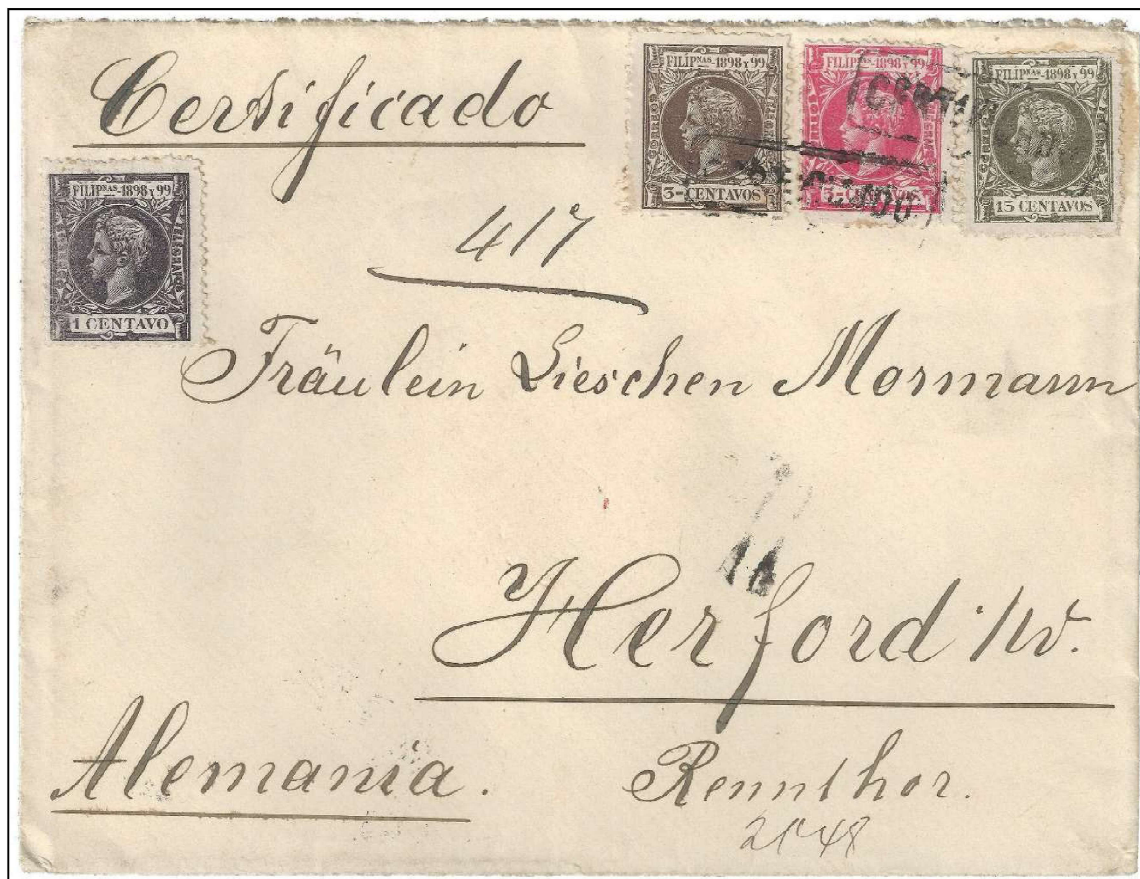 Certificado
FILIPNAS-1898 Y 99
TELEGRAFOS
1 CENTAVO
FILIPNAS-1898 Y 99
CORREOS
3-CENTAVOS
FILIPNAS-1898 Y 99
5-CENTAVOS
FILIPNAS-1898 Y 99
15 CENTAVOS
417
Fräulein Lieschen Mormann
Herford i/W.
Alemania.
Rennthor.